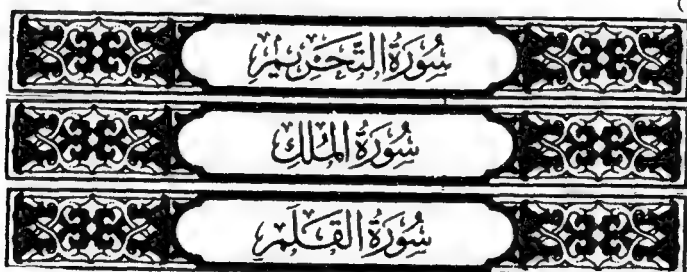 سُورَةُ التَّحْرِيمِ
سُورَةُ المُلْكِ
سُورَةُ القَلَمِ